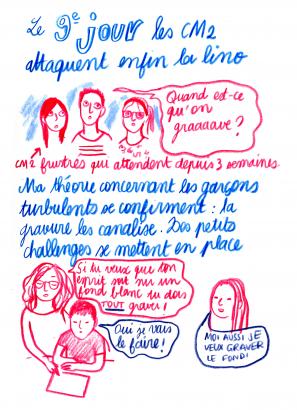 Le 9e jour les CM2
attaquent enfin la lino
Quand est-ce
qu'on
graaaave?
CM2 frustrés qui attendent depuis 3 semaines.
Ma théorie concernant les garçons
turbulents se confirment : la
gravure les canalise. Des petits
challenges se mettent en place
Si tu veux que ton
esprit soit sur un
fond blanc tu dois
TOUT graver!
Oui je vais
le faire!
MOI AUSSI JE
VEUX GRAVER
LE FOND!